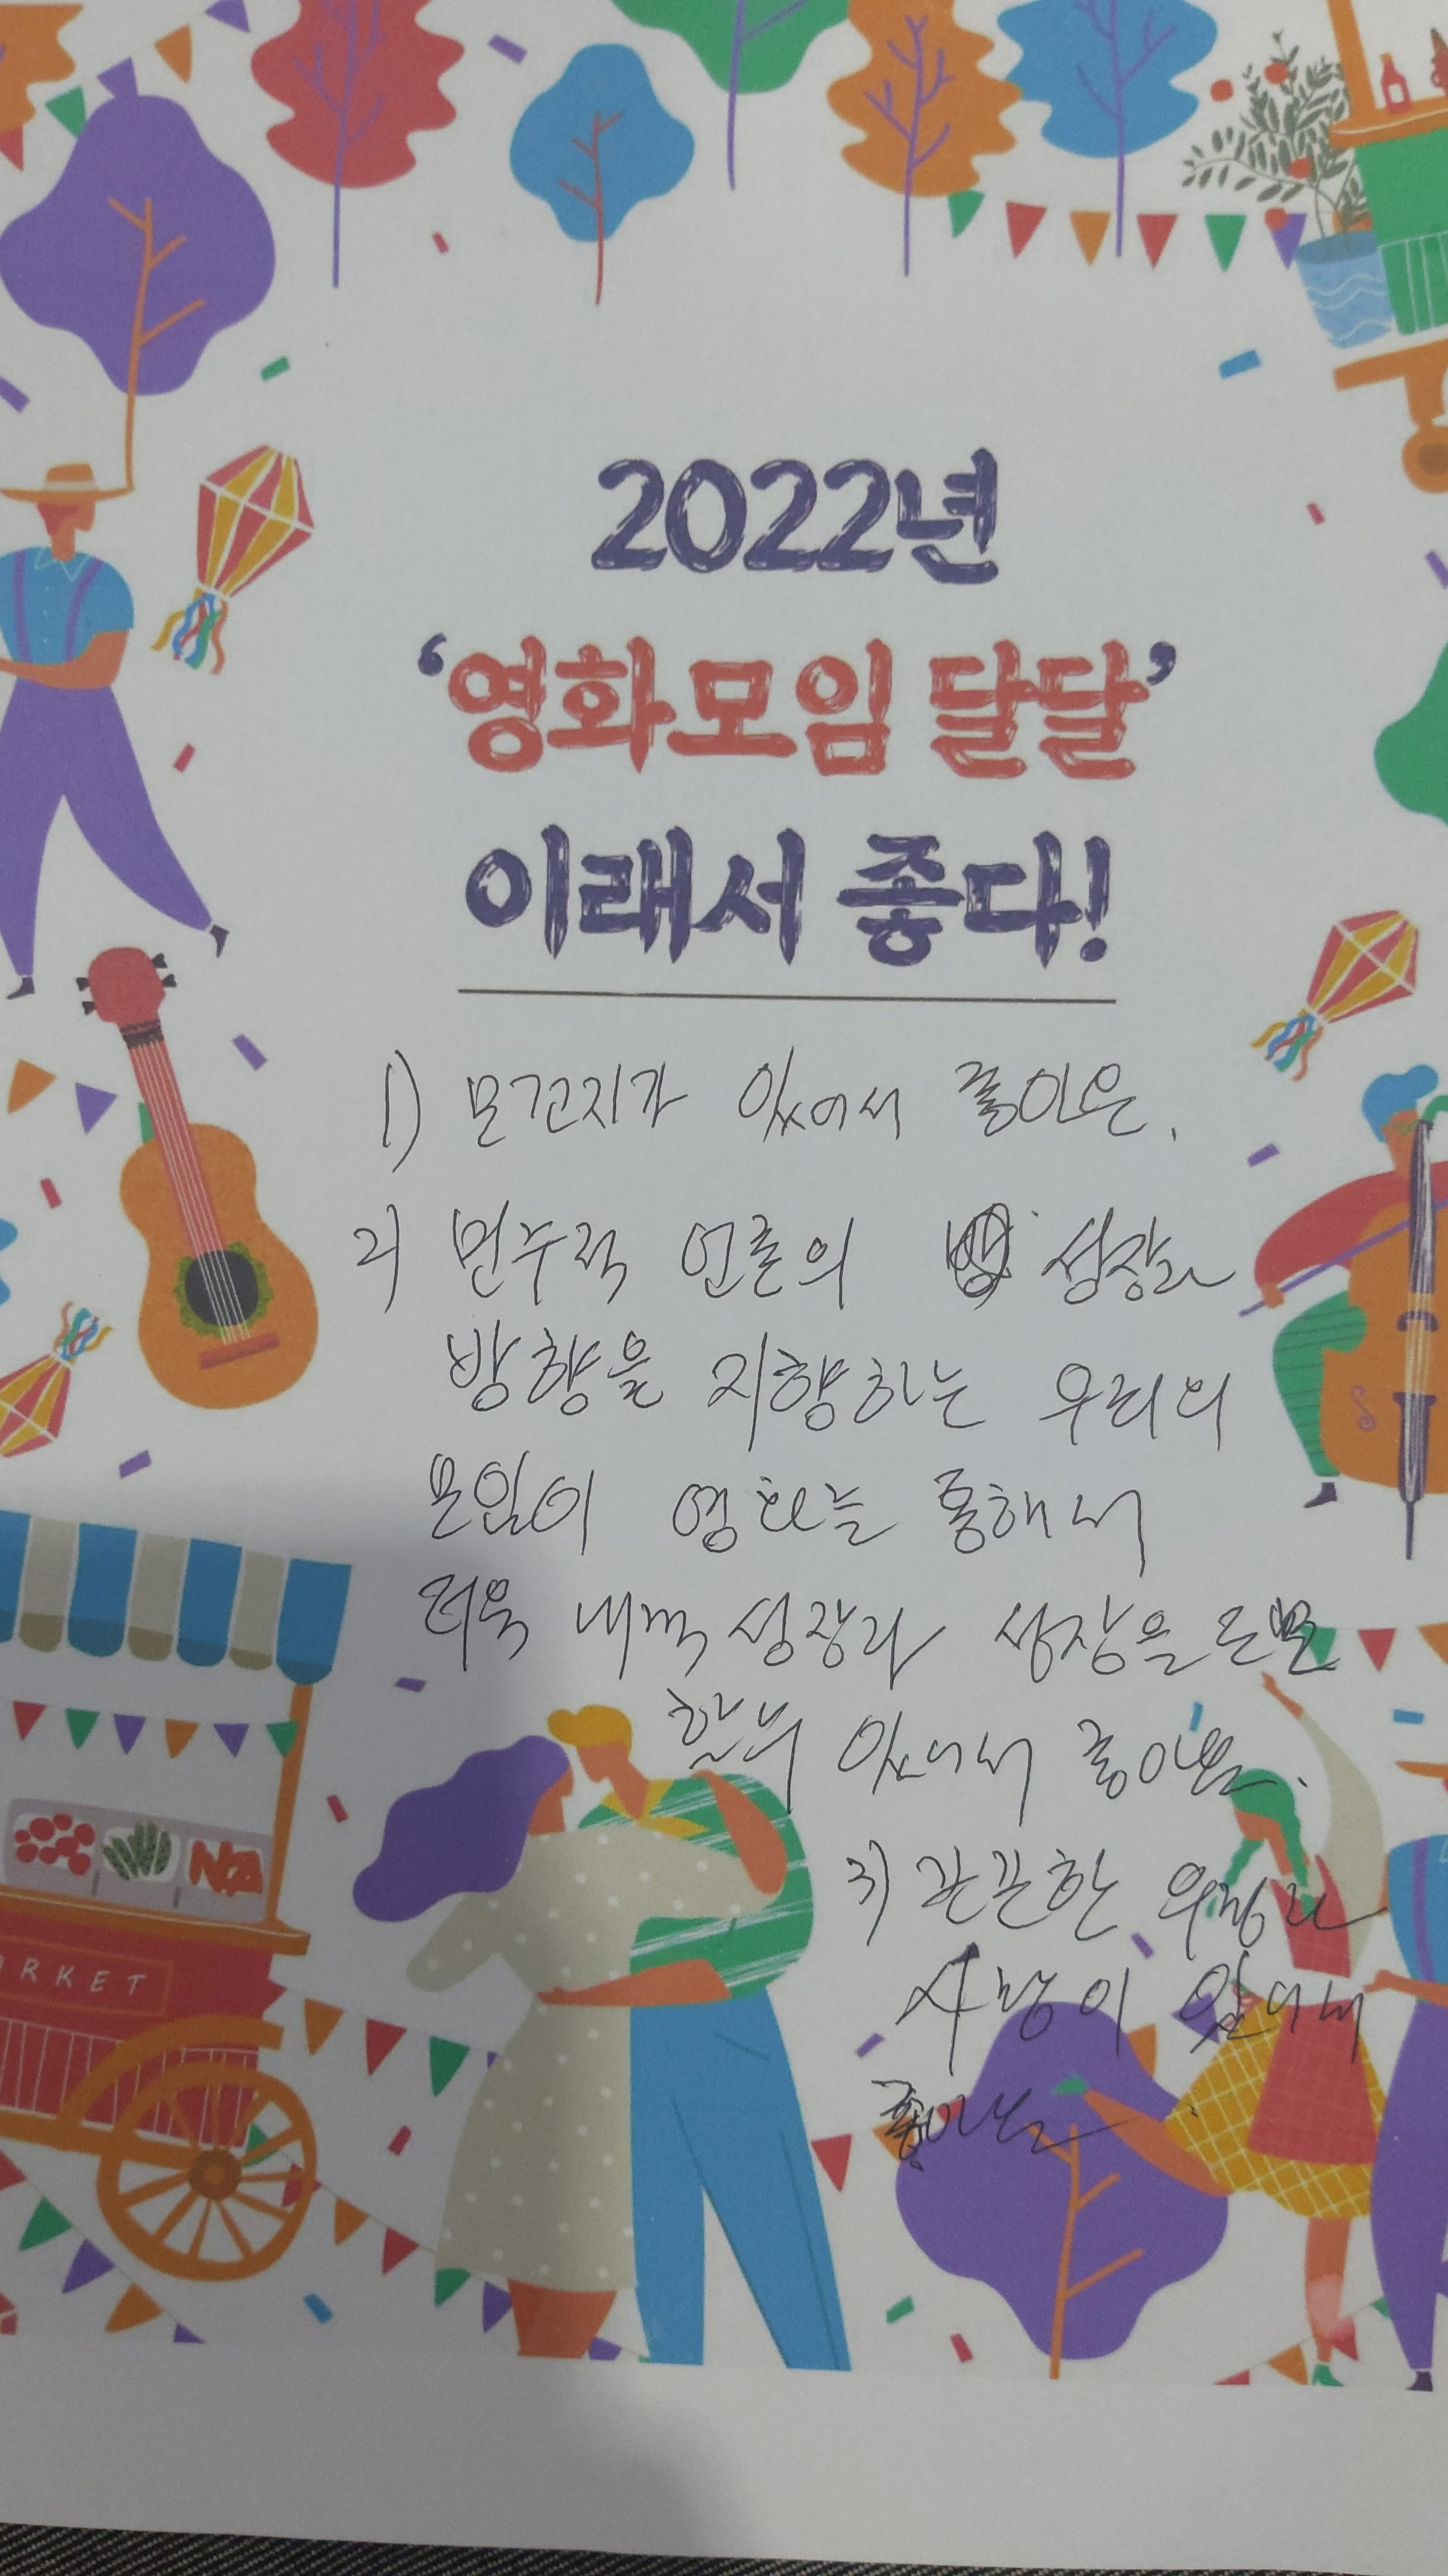 2022년
‘영화모임 달달’
이래서 좋다!
1) 모꼬지가 있어서 좋아요.
2) 민주적 언론의 성장과
방향을 지향하는 우리의
모임이 영화를 통해서
더욱 내적 성장과 성장을 도모
할 수 있어서 좋아요.
3) 끈끈한 우정과
사랑이 있어서
좋아요
ARKET